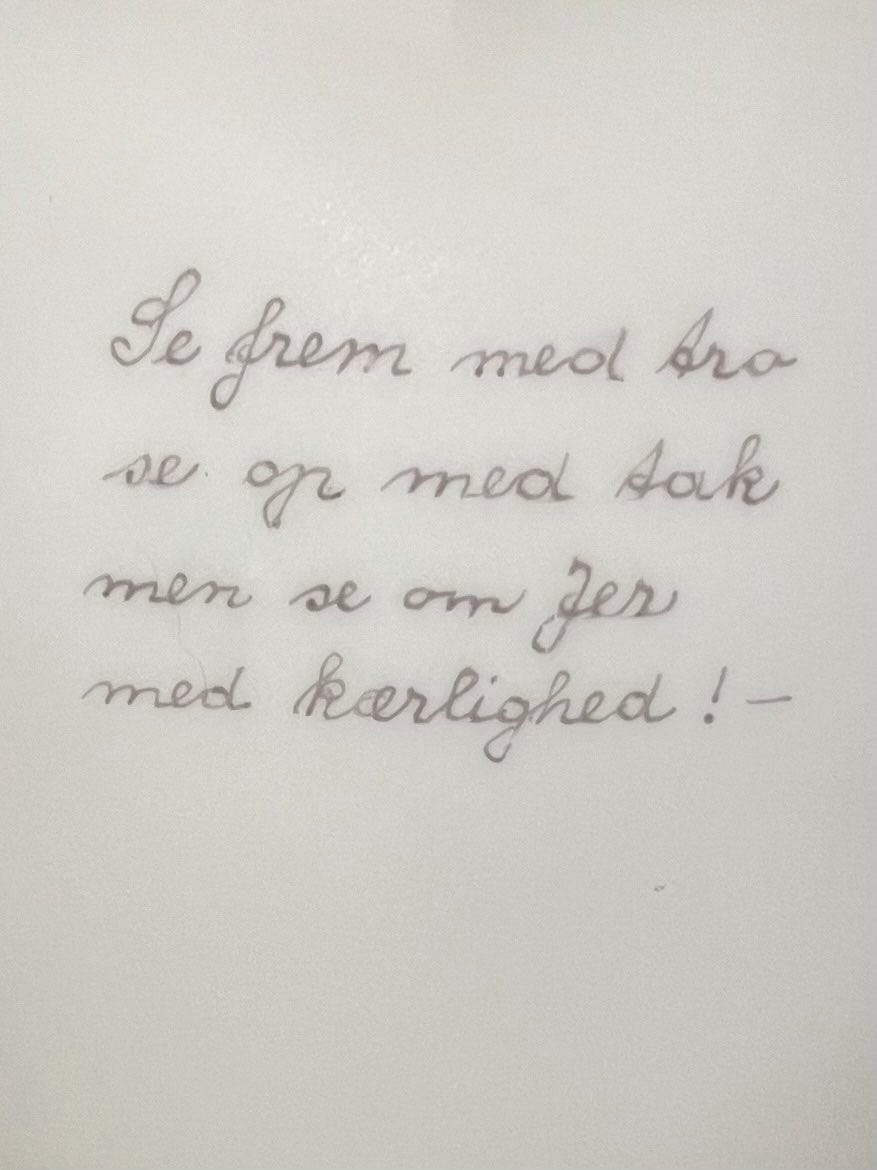 Se frem med tro
se op med tak
men se om Jer
med kærlighed! –